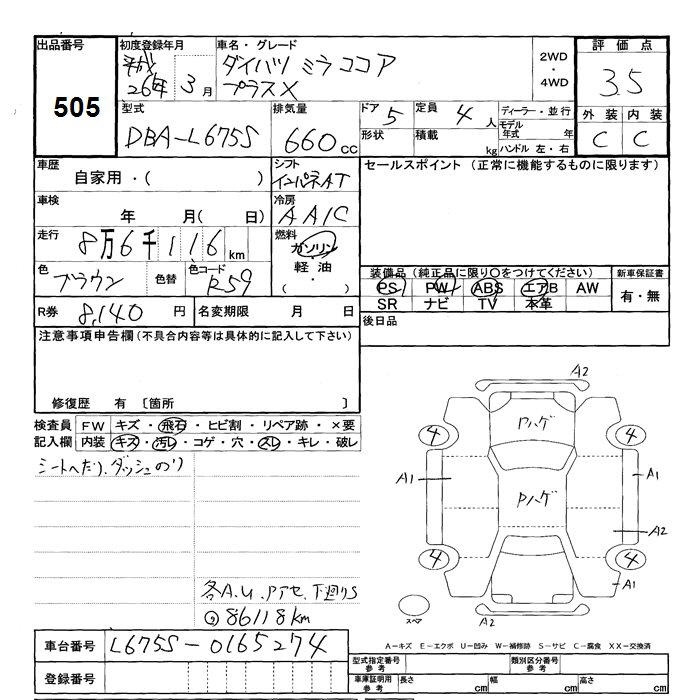 出品番号
505
初度登録年月
平成
26年 3月
車名・グレード
ダイハツ ミラココア
プラスX
2WD
・
4WD
評価点
3.5
外装 内装
C C
型式
DBA-L675S
排気量
660cc
ドア 5
形状
定員 4人
積載 kg
ディーラー・並行
モデル
年式 年
ハンドル 左・右
車歴
自家用・( )
シフト
インパネAT
セールスポイント (正常に機能するものに限ります)
車検
年 月( 日)
冷房
AAC
走行
8万6千116km
燃料
ガソリン
・
軽油
( ・ )
色
ブラウン
色替
色コード
R59
装備品(純正品に限り〇をつけてください)
PS PW ABS エアB AW
SR ナビ TV 本革
新車保証書
有・無
R券 8,140 円
名変期限 月 日
後日品
注意事項申告欄(不具合内容等は具体的に記入して下さい)
修復歴 有 〔箇所 〕
検査員
記入欄
FW キズ・飛石・ヒビ割・リペア跡・×要
内装 キズ・汚レ・コゲ・穴・スレ・キレ・破レ
シートへたり、ダッシュのり
各A.U.Pアセ.下廻りS
86118km
A2
Pハゲ
4 4
A1 A1
Pハゲ
A2
4 4
A1
スペア
A2
A-キズ E-エクボ U-凹み W-補修跡 S-サビ C-腐食 XX-交換済
車台番号
L675S-0165274
登録番号
型式指定番号
参考
類別区分番号
参考
車庫証明用
参考
長さ cm
幅 cm
高さ cm